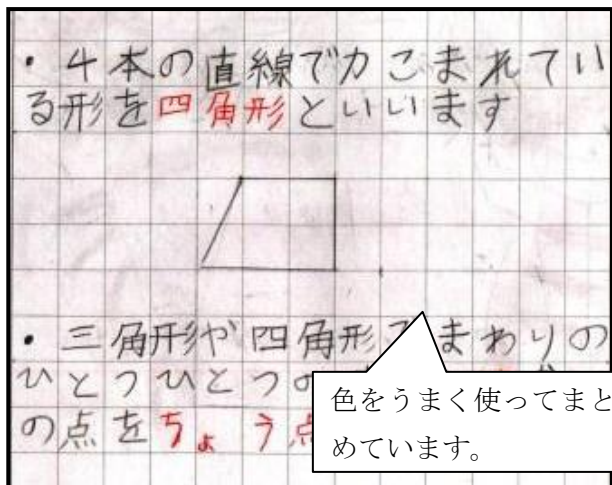 ・4本の直線でかこまれてい
る形を四角形といいます
・三角形や四角形 まわりの
ひとつひとつの
の点をちょう点
色をうまく使ってまと
めています。